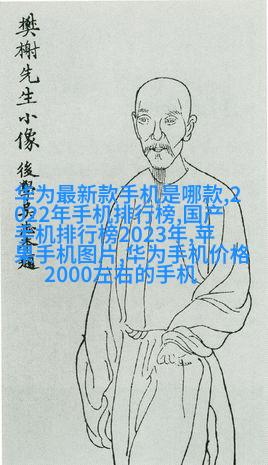 樊榭先生小像
後學
华为最新款手机是哪款,2
022年手机排行榜,国产
手机排行榜2023年,苹
果手机图片,华为手机价格
2000左右的手机